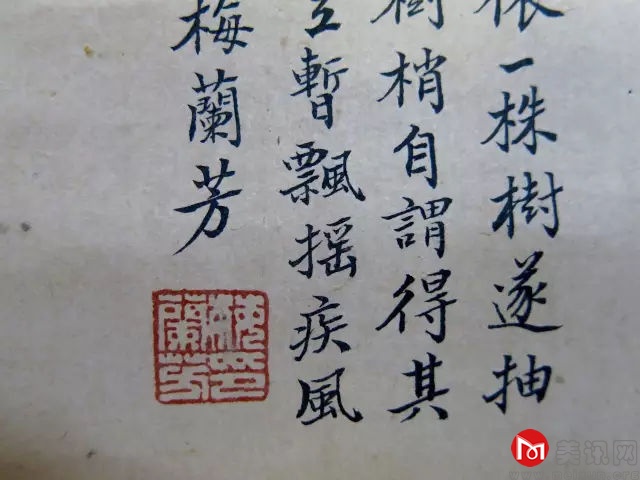 依一株樹遂抽
樹梢自謂得其
暫飄摇疾風
梅蘭芳
梅蘭芳
美讯网